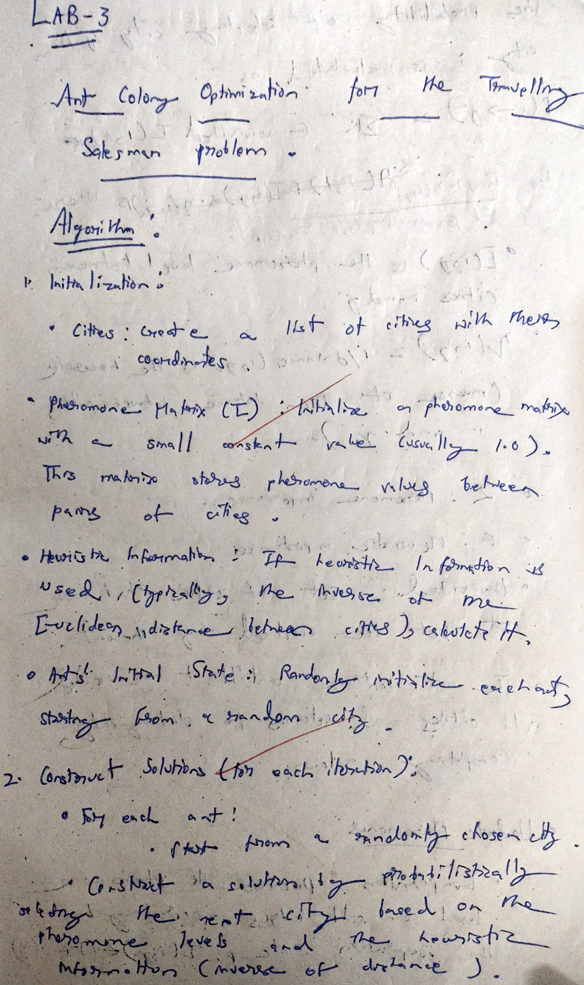 LAB-3
Ant Colony Optimization for the Travelling
Salesman problem.
Algorithm:
1. Initialization:
• Cities: create a list of cities with their
coordinates
• Pheromone Matrix (T): Initialize a pheromone matrix
with a small constant value (usually 1.0).
This matrix stores pheromone values between
pairs of cities.
• Heuristic Information: If heuristic Information is
used, (typically, the inverse of the
Euclidean distance between cities), calculate it.
• Ants' Initial State: Randomly initialize each ant,
starting from a random city.
2. Construct Solutions (for each iteration):
• For each ant:
• Start from a randomly chosen city.
• Construct a solution by probabilistically
selecting the next city based on the
pheromone levels and the heuristic
information (inverse of distance).